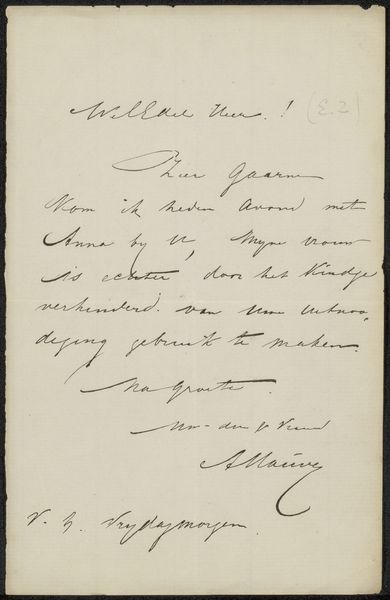 WelEdel Heer! (E.2)
Zeer Gaarne
Kom ik heden Avond met
Anna by U, Myne vrouw
is echter door het Kindje
verhinderd. van Uwe uitnoo-
diging gebruik te maken.
Na Groete.
Vriend
AMauve
V. h. Vrydagmorgen